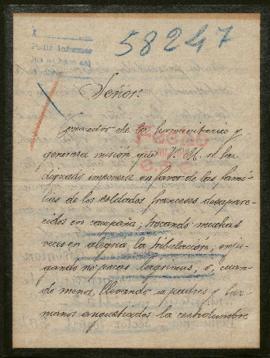 58247
Señor:
Conocedor de la humanitaria y
generosa misión que V. M. se ha
dignado imponerse en favor de las fami-
lias de los soldados franceses desapare-
cidos en campaña, trocando muchas
veces en alegria la tribulación, enju-
gando no pocas lagrimas, ó, cuan-
do menos, llevando a padres y her-
manos angustiados la certidumbre